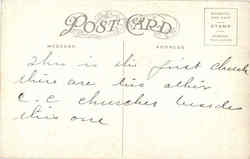 POST CARD
MESSAGE
ADDRESS
STAMP
This is the first church
there are two other
C. C. churches besides
this one